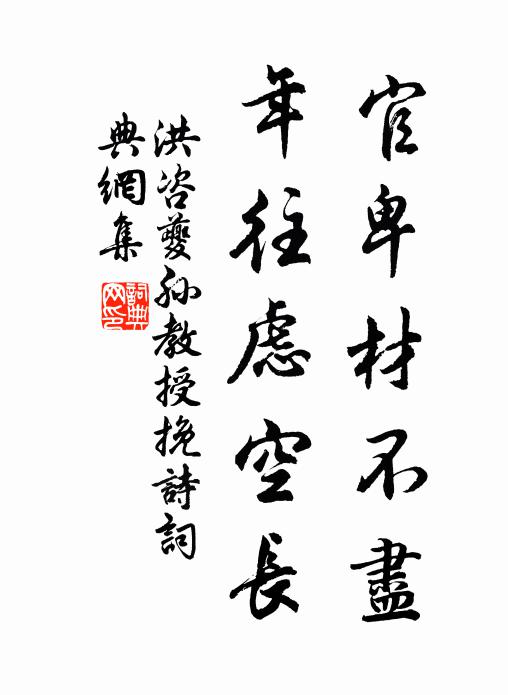 官卑材不盡
年往慮空長
洪咨夔孫教授挽詩詞
典網集
詞典網印